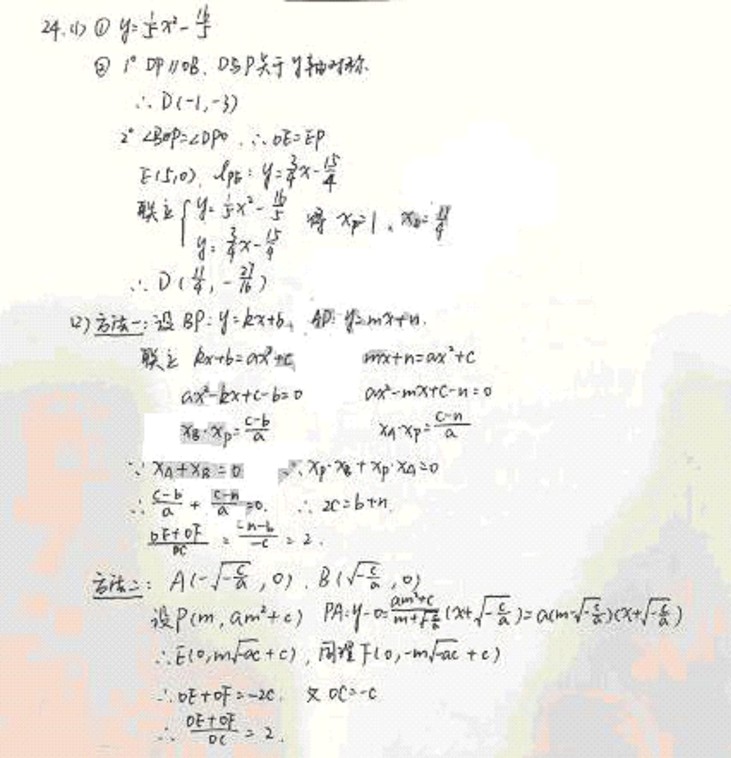 24.(1) ① y=1/5x²-16/5
② 1° DP∥OB、D与P关于y轴对称.
∴ D(-1,-3)
2° ∠BOP=∠DPO ∴ OE=EP
E(5,0). lPE: y=3/4x-15/4
联立 { y=1/5x²-16/5 得 xP=1、xD=11/4
y=3/4x-15/4
∴ D(11/4, -27/16)
(2) 方法一: 设 BP: y=kx+b, AP: y=mx+n.
联立 kx+b=ax²+c mx+n=ax²+c
ax²-kx+c-b=0 ax²-mx+c-n=0
xB·xP=(c-b)/a xA·xP=(c-n)/a
∵ xA+xB=0 ∴ xP·xB+xP·xA=0
∴ (c-b)/a + (c-n)/a=0. ∴ 2c=b+n.
(OE+OF)/OC = (-n-b)/-c = 2.
方法二: A(-√(-c/a),0). B(√(-c/a),0)
设P(m, am²+c) PA: y-0=(am²+c)/(m+√(-c/a))(x+√(-c/a))=a(m-√(-c/a))(x+√(-c/a))
∴E(0,m√-ac+c), 同理F(0,-m√-ac+c)
∴OE+OF=-2c. 又OC=-c
∴ (OE+OF)/OC=2.